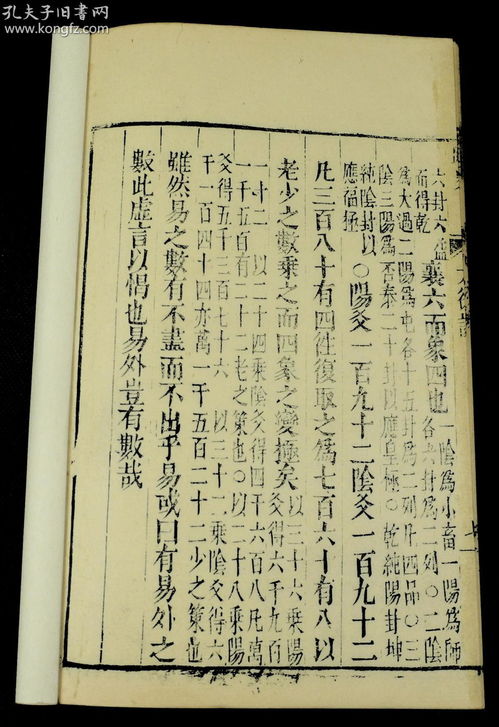 孔夫子旧书网
www.kongfz.com
六卦六虛
而得乾
襄六而象四也
一陰為小畜一陽為師
各六卦為二列〇二陰
為大過二陽為屯各十五卦為二列凡四品〇三
陰三陽為否泰二十卦以應皇極〇乾純陽卦坤
純陰卦以
應福極
〇陽爻一百九十二陰爻一百九十二
凡三百八十有四往復取之為七百六十有八以
老少之數乘之而四象之變極矣
以三十六乘陽
爻得六千九百
一十二　以二十四乘陰爻得四千六百八凡萬
一千五百有二十二老之策也〇以二十八乘陽
爻得五千三百七十六　以三十二乘陰爻得六
千一百四十四亦萬一千五百二十二少之策也
雖然易之數有不盡而不出乎易或曰有易外之
數此虛言以愒也易外豈有數哉